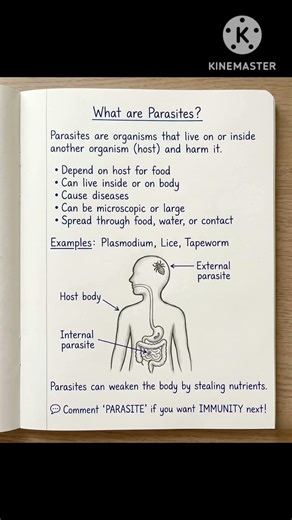 K
KINEMASTER
What are Parasites?
Parasites are organisms that live on or inside
another organism (host) and harm it.
• Depend on host for food
• Can live inside or on body
• Cause diseases
• Can be microscopic or large
• Spread through food, water, or contact
Examples: Plasmodium, Lice, Tapeworm
External
parasite
Host body
Internal
parasite
Parasites can weaken the body by stealing nutrients.
💬 Comment 'PARASITE' if you want IMMUNITY next!